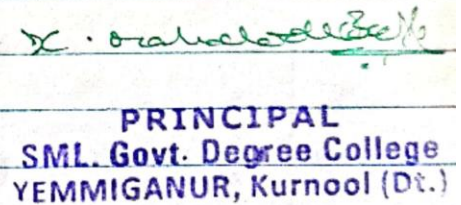 PRINCIPAL
SML. Govt. Degree College
YEMMIGANUR, Kurnool (Dt.)